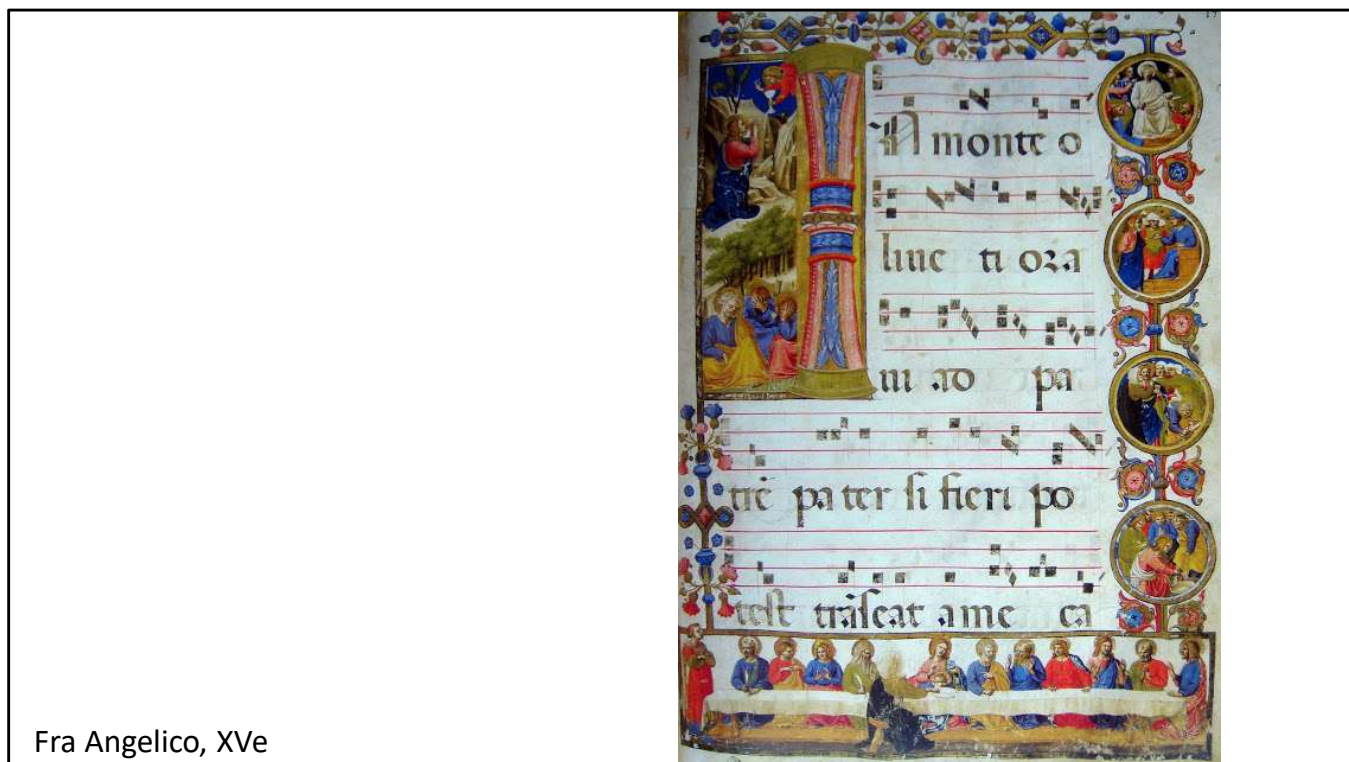 IN monte o
liue ti ora
ui ad pa
trē pa ter si fieri po
test trāseat a me ca
Fra Angelico, XVe